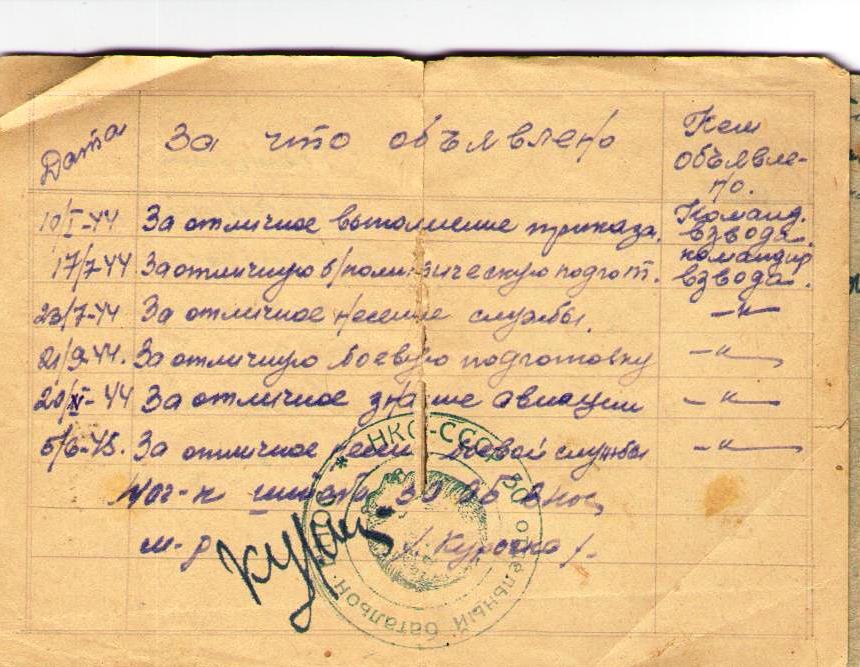 Дата За что объявлено Кем объявле-
но.
10/I-44 За отличное выполнение приказа. Команд. взвода.
17/7-44 За отличную б/политическую подгот. командир взвода.
23/7-44 За отличное несение службы. —"—
21/9-44. За отличную боевую подготовку —"—
20/XI-44 За отличное знание авиации —"—
5/6-45. За отличное несен боевой службы —"—
штаба 30 об внос
м-р /. Курочка /.
НКО-СССР 30 отдельный батальон ВНОС